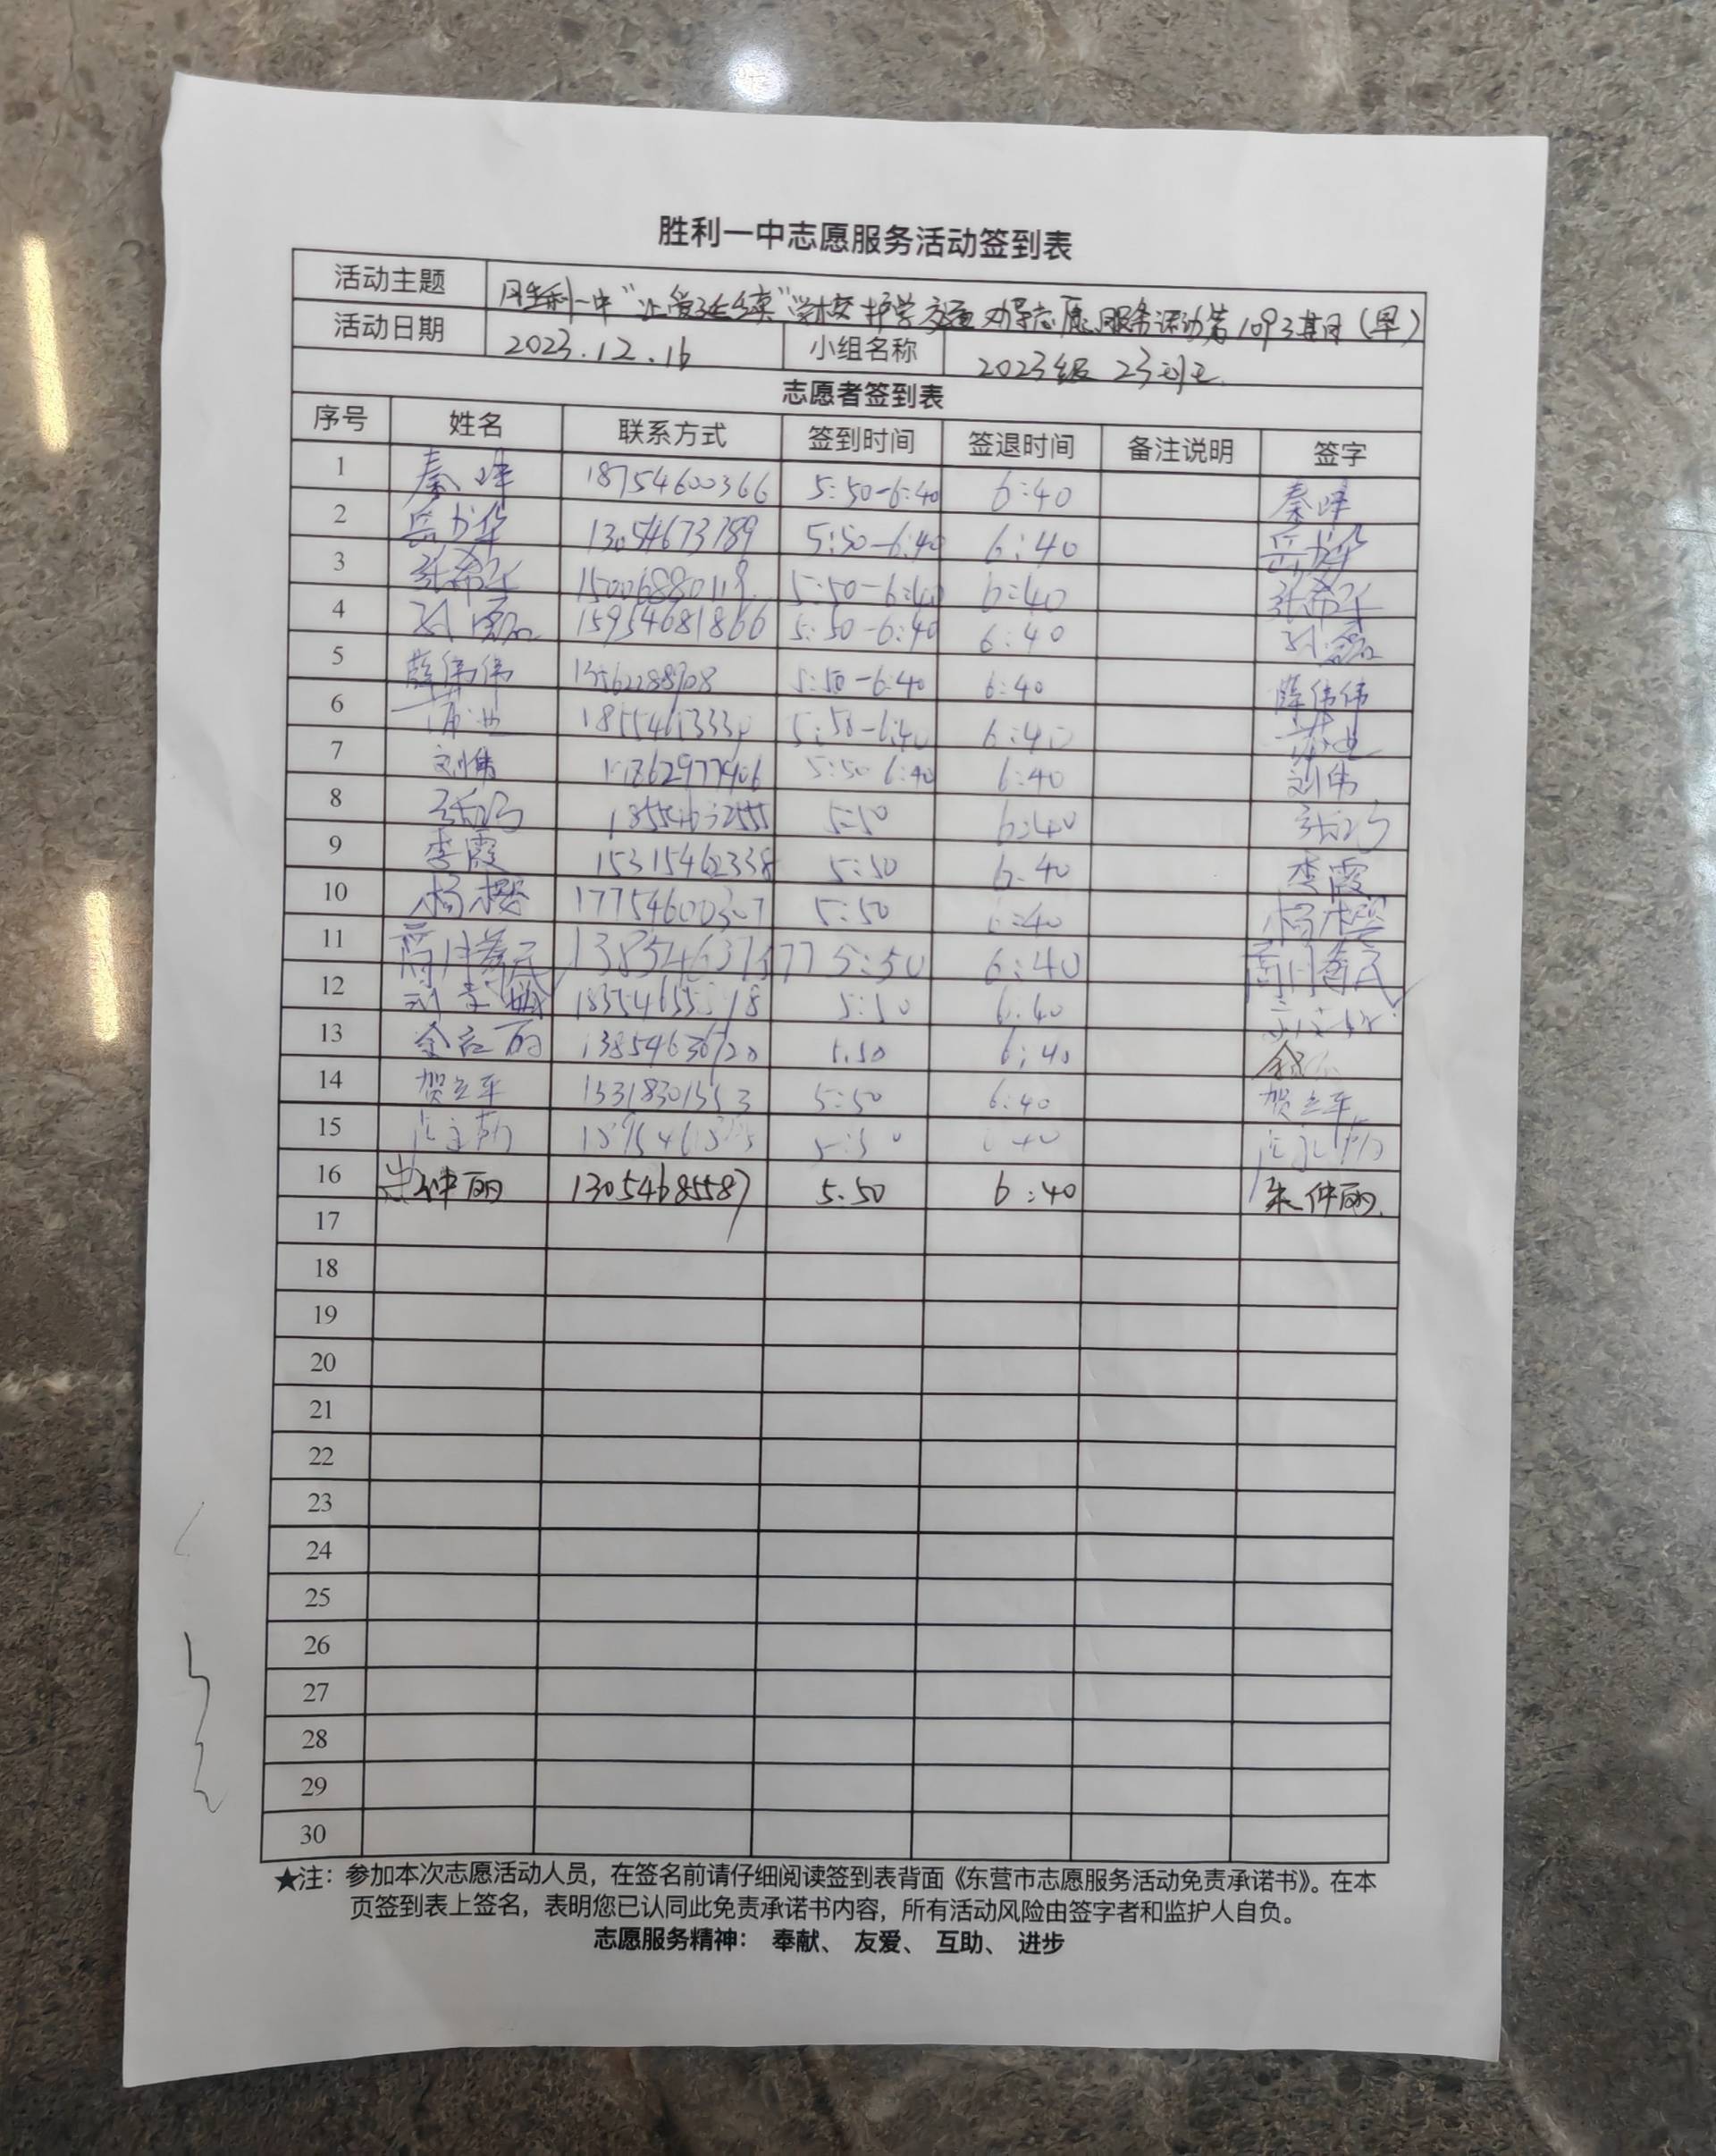 胜利一中志愿服务活动签到表
活动主题 胜利一中"让爱延续"学校护学交通劝导志愿服务活动第1093期(早)
活动日期 2023.12.16 小组名称 2023级23班
志愿者签到表
序号 姓名 联系方式 签到时间 签退时间 备注说明 签字
1 秦峰 18754600366 5:50-6:40 6:40 秦峰
2 岳书华 13054673789 5:50-6:40 6:40 岳书华
3 15006880119 5:50-6:40 6:40
4 15954681866 5:50-6:40 6:40
5 薛伟伟 5:50-6:40 6:40 薛伟伟
6 5:50-6:40 6:40
7 刘伟 5:50-6:40 6:40 刘伟
8 5:50 6:40
9 李霞 15315462338 5:50 6:40 李霞
10 杨樱 17754600307 5:50 6:40 杨樱
11 5:50 6:40
12 5:50 6:40
13 5.50 6:40
14 贺立平 5:50 6:40 贺立平
15
16 朱仲丽 13054685587 5:50 6:40 朱仲丽
17
18
19
20
21
22
23
24
25
26
27
28
29
30
★注：参加本次志愿活动人员，在签名前请仔细阅读签到表背面《东营市志愿服务活动免责承诺书》。在本
页签到表上签名，表明您已认同此免责承诺书内容，所有活动风险由签字者和监护人自负。
志愿服务精神： 奉献、 友爱、 互助、 进步